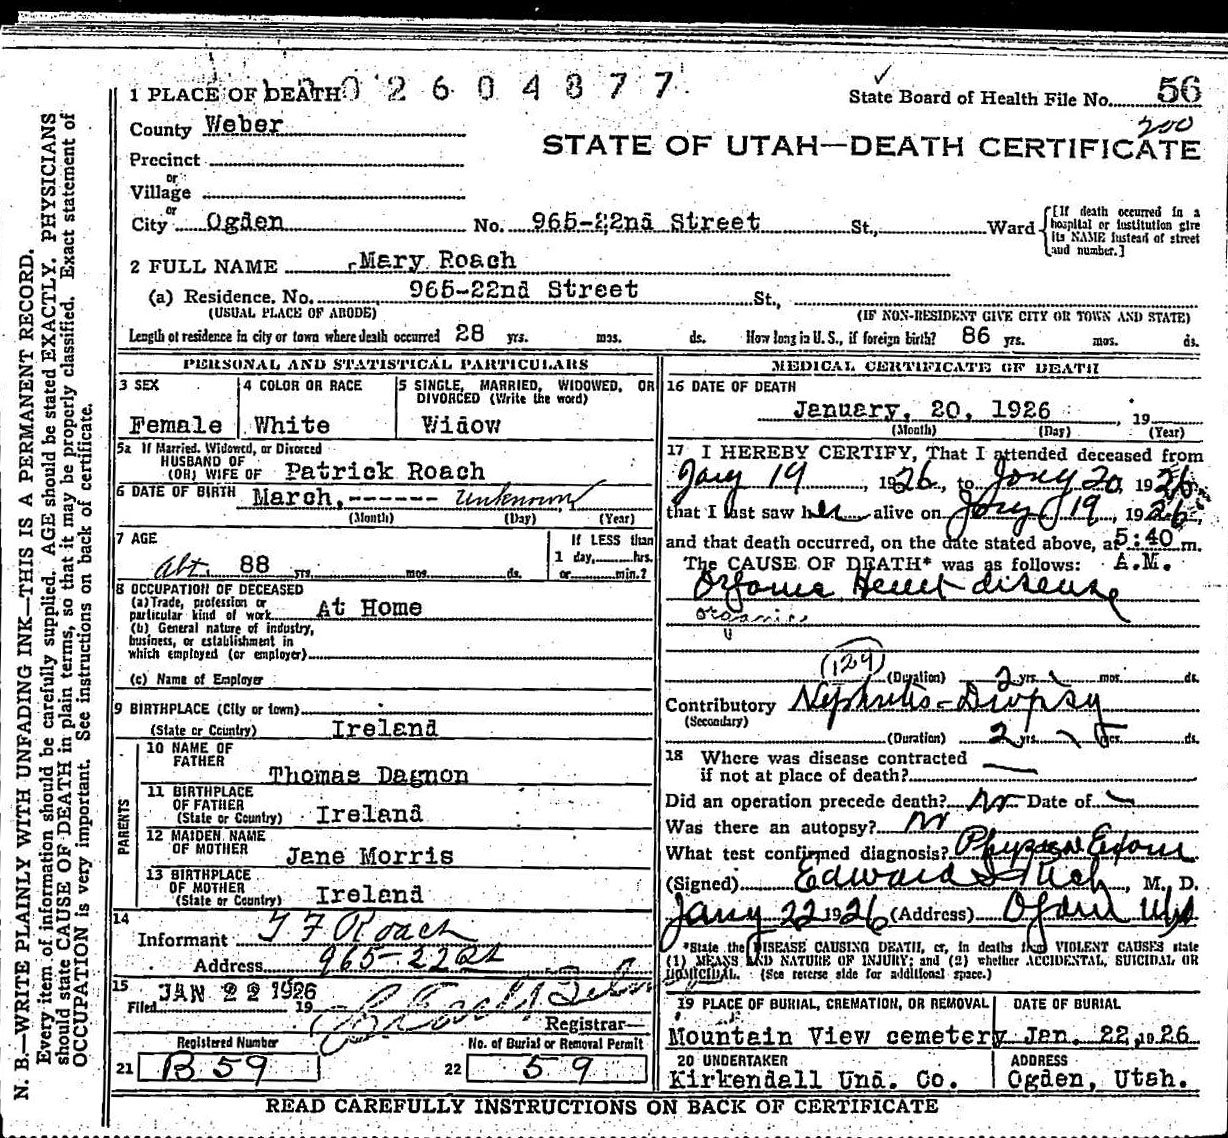 N. B.—WRITE PLAINLY WITH UNFADING INK—THIS IS A PERMANENT RECORD.
Every item of information should be carefully supplied. AGE should be stated EXACTLY. PHYSICIANS
should state CAUSE OF DEATH in plain terms, so that it may be properly classified. Exact statement of
OCCUPATION is very important. See instructions on back of certificate.
02604877
1 PLACE OF DEATH
State Board of Health File No. 56
200
County Weber
STATE OF UTAH—DEATH CERTIFICATE
Precinct
or
Village
or
City Ogden No. 965-22nd Street St., Ward
[If death occurred in a
hospital or institution give
its NAME instead of street
and number.]
2 FULL NAME Mary Roach
(a) Residence. No. 965-22nd Street St.,
(USUAL PLACE OF ABODE) (IF NON-RESIDENT GIVE CITY OR TOWN AND STATE)
Length of residence in city or town where death occurred 28 yrs. mos. ds. How long in U. S., if foreign birth? 86 yrs. mos. ds.
PERSONAL AND STATISTICAL PARTICULARS
3 SEX
Female
4 COLOR OR RACE
White
5 SINGLE, MARRIED, WIDOWED, OR
DIVORCED (Write the word)
Widow
5a If Married, Widowed, or Divorced
HUSBAND OF
(OR) WIFE OF Patrick Roach
6 DATE OF BIRTH March, ------ Unknown
(Month) (Day) (Year)
7 AGE
Abt. 88 yrs. mos. ds.
If LESS than
1 day, hrs.
or min.?
8 OCCUPATION OF DECEASED
(a) Trade, profession or
particular kind of work At Home
(b) General nature of industry,
business, or establishment in
which employed (or employer)
(c) Name of Employer
9 BIRTHPLACE (City or town)
(State or Country) Ireland
PARENTS
10 NAME OF
FATHER
Thomas Dagnon
11 BIRTHPLACE
OF FATHER
(State or Country) Ireland
12 MAIDEN NAME
OF MOTHER
Jane Morris
13 BIRTHPLACE
OF MOTHER
(State or Country) Ireland
14
Informant T F Roach
Address 965-22 St
15
Filed JAN 22 1926 19
Registrar
Registered Number
21 B 59
No. of Burial or Removal Permit
22 59
MEDICAL CERTIFICATE OF DEATH
16 DATE OF DEATH
January, 20, 1926 , 19
(Month) (Day) (Year)
17 I HEREBY CERTIFY, That I attended deceased from
Jany 19, 1926, to Jany 20, 1926
that I last saw her alive on Jany 19, 1926,
and that death occurred, on the date stated above, at 5:40 m.
The CAUSE OF DEATH* was as follows: A.M.
Organic Heart disease
organic
(129)
(Duration) 2 yrs. mos. ds.
Contributory Nephritis - Dropsy
(Secondary)
(Duration) 2 yrs. mos. ds.
18 Where was disease contracted
if not at place of death?
Did an operation precede death? No Date of
Was there an autopsy? No
What test confirmed diagnosis? Physical Exam
(Signed) Edward I Rich, M. D.
Jany 22 1926 (Address) Ogden Utah
*State the DISEASE CAUSING DEATH, or, in deaths from VIOLENT CAUSES state
(1) MEANS AND NATURE OF INJURY; and (2) whether ACCIDENTAL, SUICIDAL OR
HOMICIDAL. (See reverse side for additional space.)
19 PLACE OF BURIAL, CREMATION, OR REMOVAL
Mountain View cemetery
DATE OF BURIAL
Jan. 22, 1926
20 UNDERTAKER
Kirkendall Und. Co.
ADDRESS
Ogden, Utah.
READ CAREFULLY INSTRUCTIONS ON BACK OF CERTIFICATE